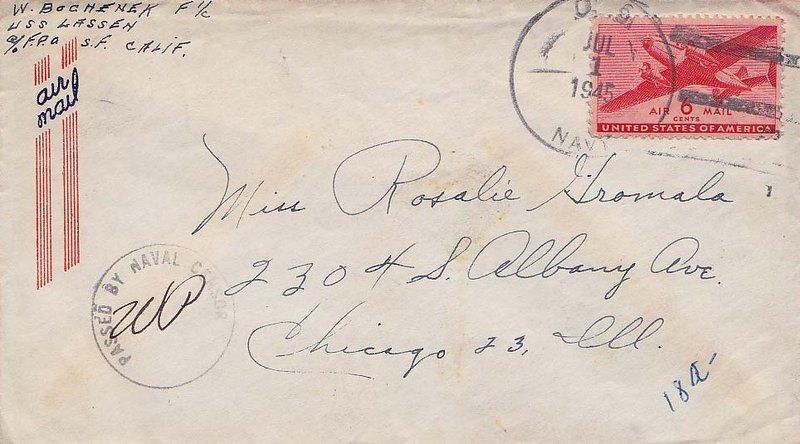 W. BOCHENEK F 1/c
USS LASSEN
c/o F.P.O. S.F. CALIF.
air
mail
U.S.
JUL
1
1945
NAVY
AIR 6 MAIL
CENTS
UNITED STATES OF AMERICA
Miss Rosalie Gromala
2304 S. Albany Ave.
Chicago 23, Ill.
PASSED BY NAVAL CENSOR